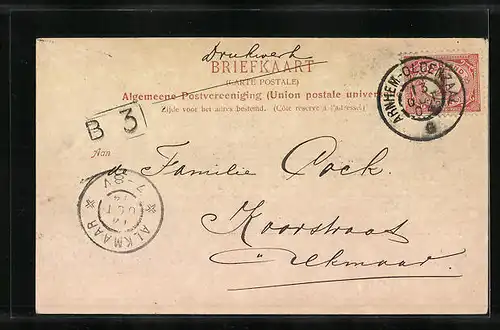 Drukwerk
BRIEFKAART
(CARTE POSTALE)
Algemeene Postvereeniging (Union postale univer
Zijde voor het adres bestemd. (Côté réservé à l'adresse)
ARNHEM-OLDENZAAL
G
B 3
Aan
de Familie Cock.
Koorstraat
Alkmaar.
7-8V
OCT
ALKMAAR